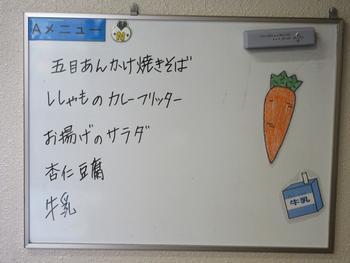 Aメニュー
五目あんかけ焼きそば
ししゃものカレーフリッター
お揚げのサラダ
杏仁豆腐
牛乳
牛乳